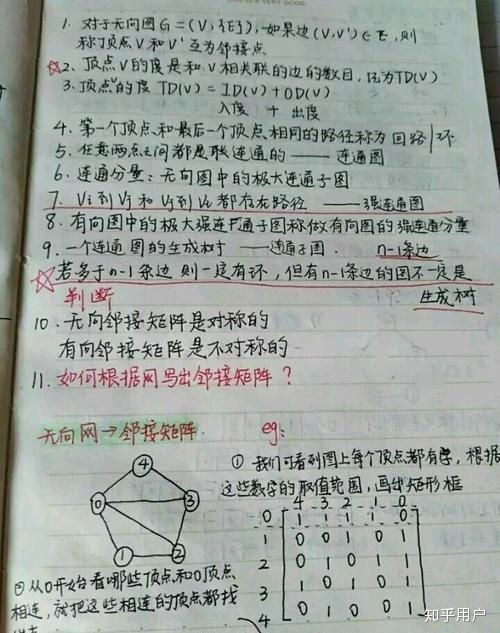 1. 对于无向图G=(V,{E}),如果边(V,V')∈E,则
称顶点V和V'互为邻接点
☆2. 顶点V的度是和V相关联的边的数目,记为TD(V)
3. 顶点V的度 TD(V)=ID(V)+OD(V)
入度 + 出度
4. 第一个顶点和最后一个顶点相同的路径称为 回路/环
5. 任意两点之间都是联连通的 —— 连通图
6. 连通分量:无向图中的极大连通子图
7. Vi到Vj和Vj到Vi都存在路径 —— 强连通图
8. 有向图中的极大强连通子图称做有向图的强连通分量
9. 一个连通图的生成树 —— 连通子图. n-1条边
☆若多于n-1条边则一定有环,但有n-1条边的图不一定是
判断 生成树
10. 无向邻接矩阵是对称的
有向邻接矩阵是不对称的
11. 如何根据网写出邻接矩阵?
无向网→邻接矩阵. eg:
① 我们可看到图上每个顶点都有, 根据
这些数字的取值范围,画出矩形框
4
0 3
1 2
4 3 2 1 0
0 1 1 1 1 0
1 0 0 1 0 1
2 1 0 1 1
3 1 0 1 0 1
4 0 1 0 0 1
② 从0开始看哪些顶点和0顶点
相连,就把这些相连的顶点都找
知乎用户